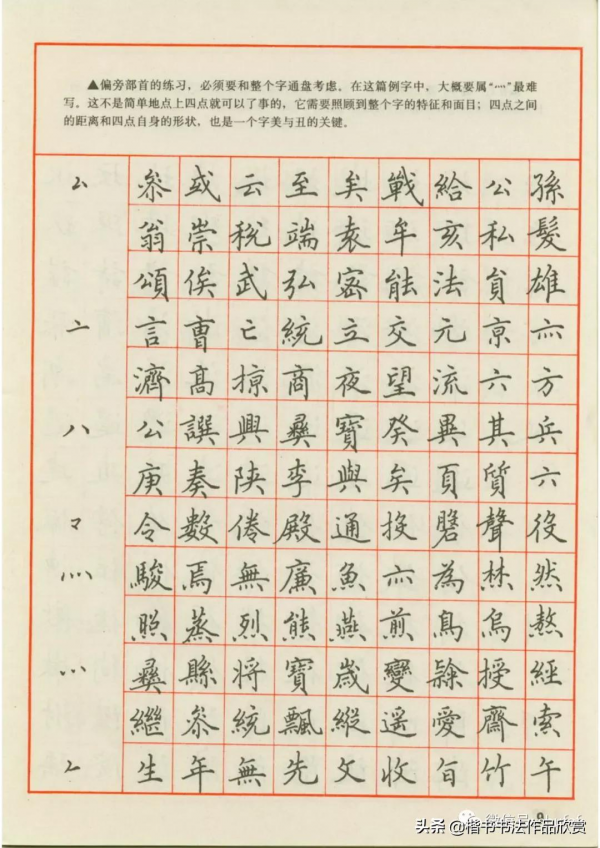 ▲偏旁部首的练习，必须要和整个字通盘考虑。在这篇例字中，大概要属“灬”最难
写。这不是简单地点上四点就可以了事的，它需要照顾到整个字的特征和面目；四点之间
的距离和四点自身的形状，也是一个字美与丑的关键。
厶 叅 或 云 至 矣 戰 給 公 孫
翁 崇 税 端 袁 牟 亥 私 髮
頌 俟 武 弘 密 能 法 貟 雄
亠 言 曹 亡 統 立 交 元 京 亦
濟 高 掠 商 夜 望 流 六 方
八 公 譔 興 彝 寶 癸 異 其 兵
庚 奏 陕 李 與 矣 頁 質 六
令 数 倦 殿 通 投 聲 役
灬 駿 焉 無 廉 魚 亦 為 然
照 蒸 烈 熊 燕 煎 鳥 烏 熬
彝 縣 将 寶 歳 變 授 經
繼 叅 統 飄 縱 遥 愛 齋 索
𠂉 生 年 無 先 文 收 旨 竹 午
9
头条@楷书书法作品欣赏